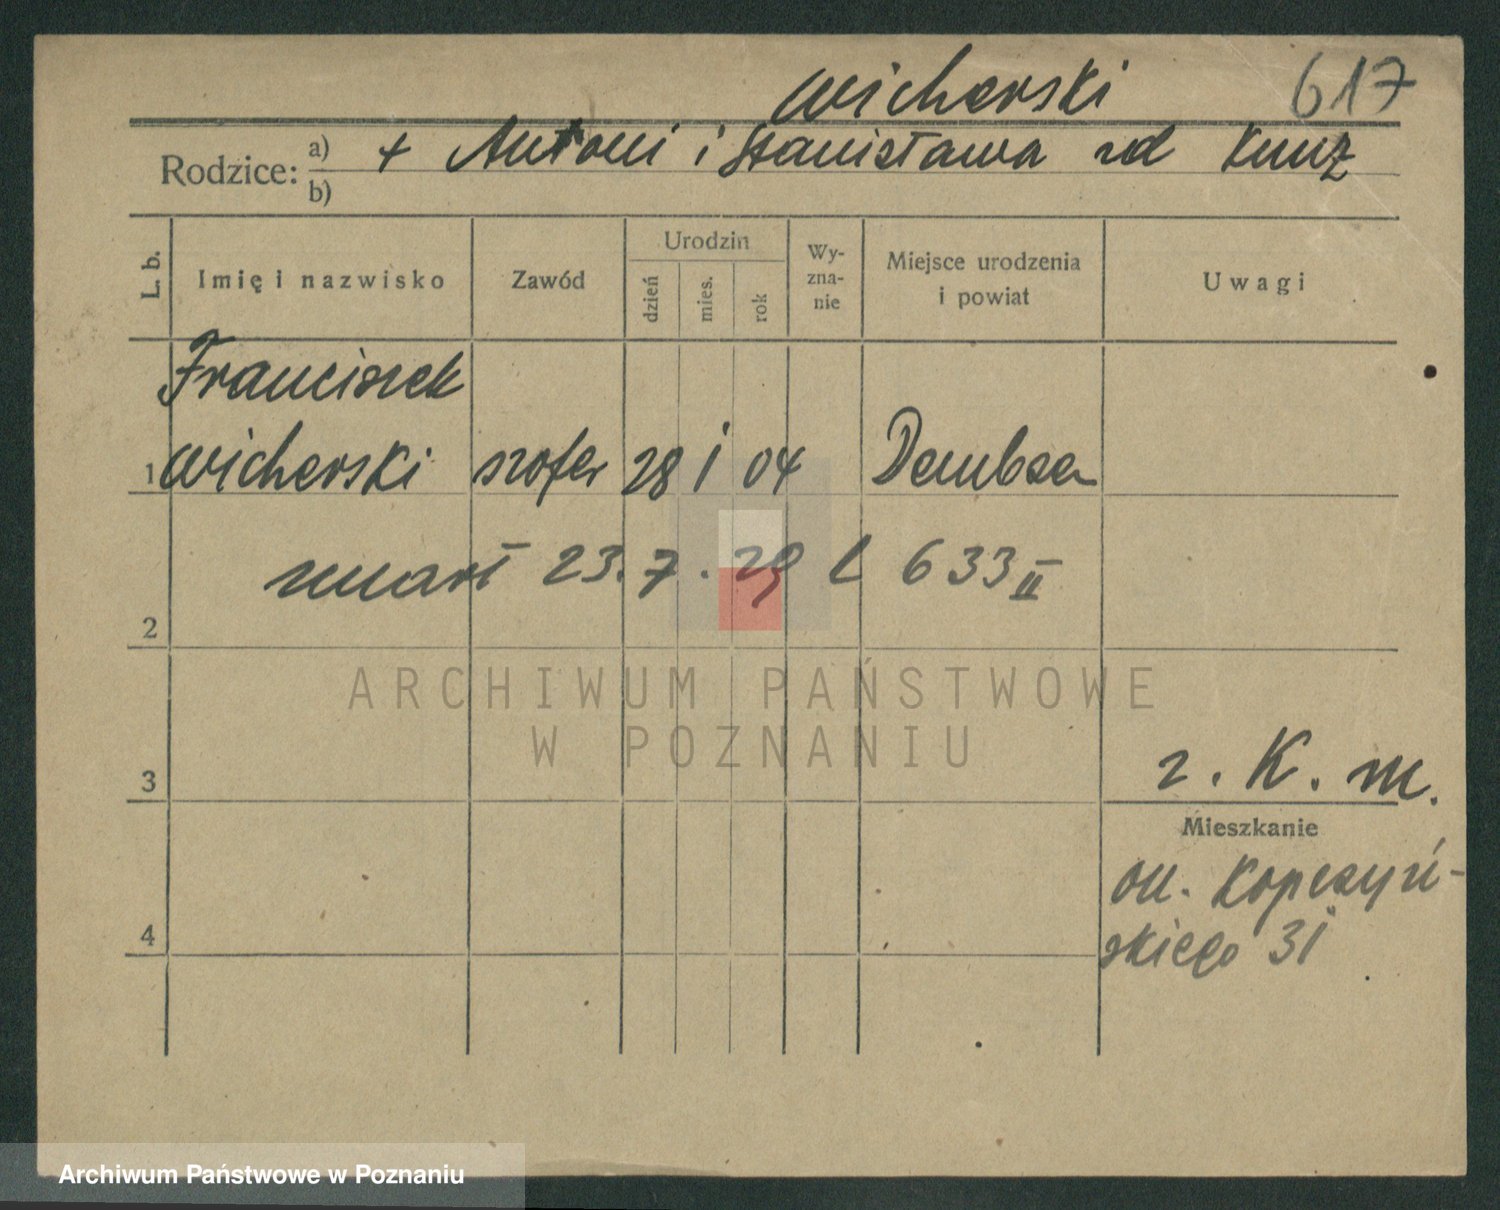 Wicherski 617
Rodzice: a) + Antoni i Stanisława zd Kunz
b)
L. b. Imię i nazwisko Zawód Urodzin dzień mies. rok Wy-zna-nie Miejsce urodzenia i powiat Uwagi
Franciszek
1 Wicherski szofer 28 I 04 Dembsen
zmarł 23.7.29 L 633 II
2
ARCHIWUM PAŃSTWOWE
W POZNANIU
3 r. K. m.
Mieszkanie
ou. Kopczyń-
4 skiego 31
Archiwum Państwowe w Poznaniu